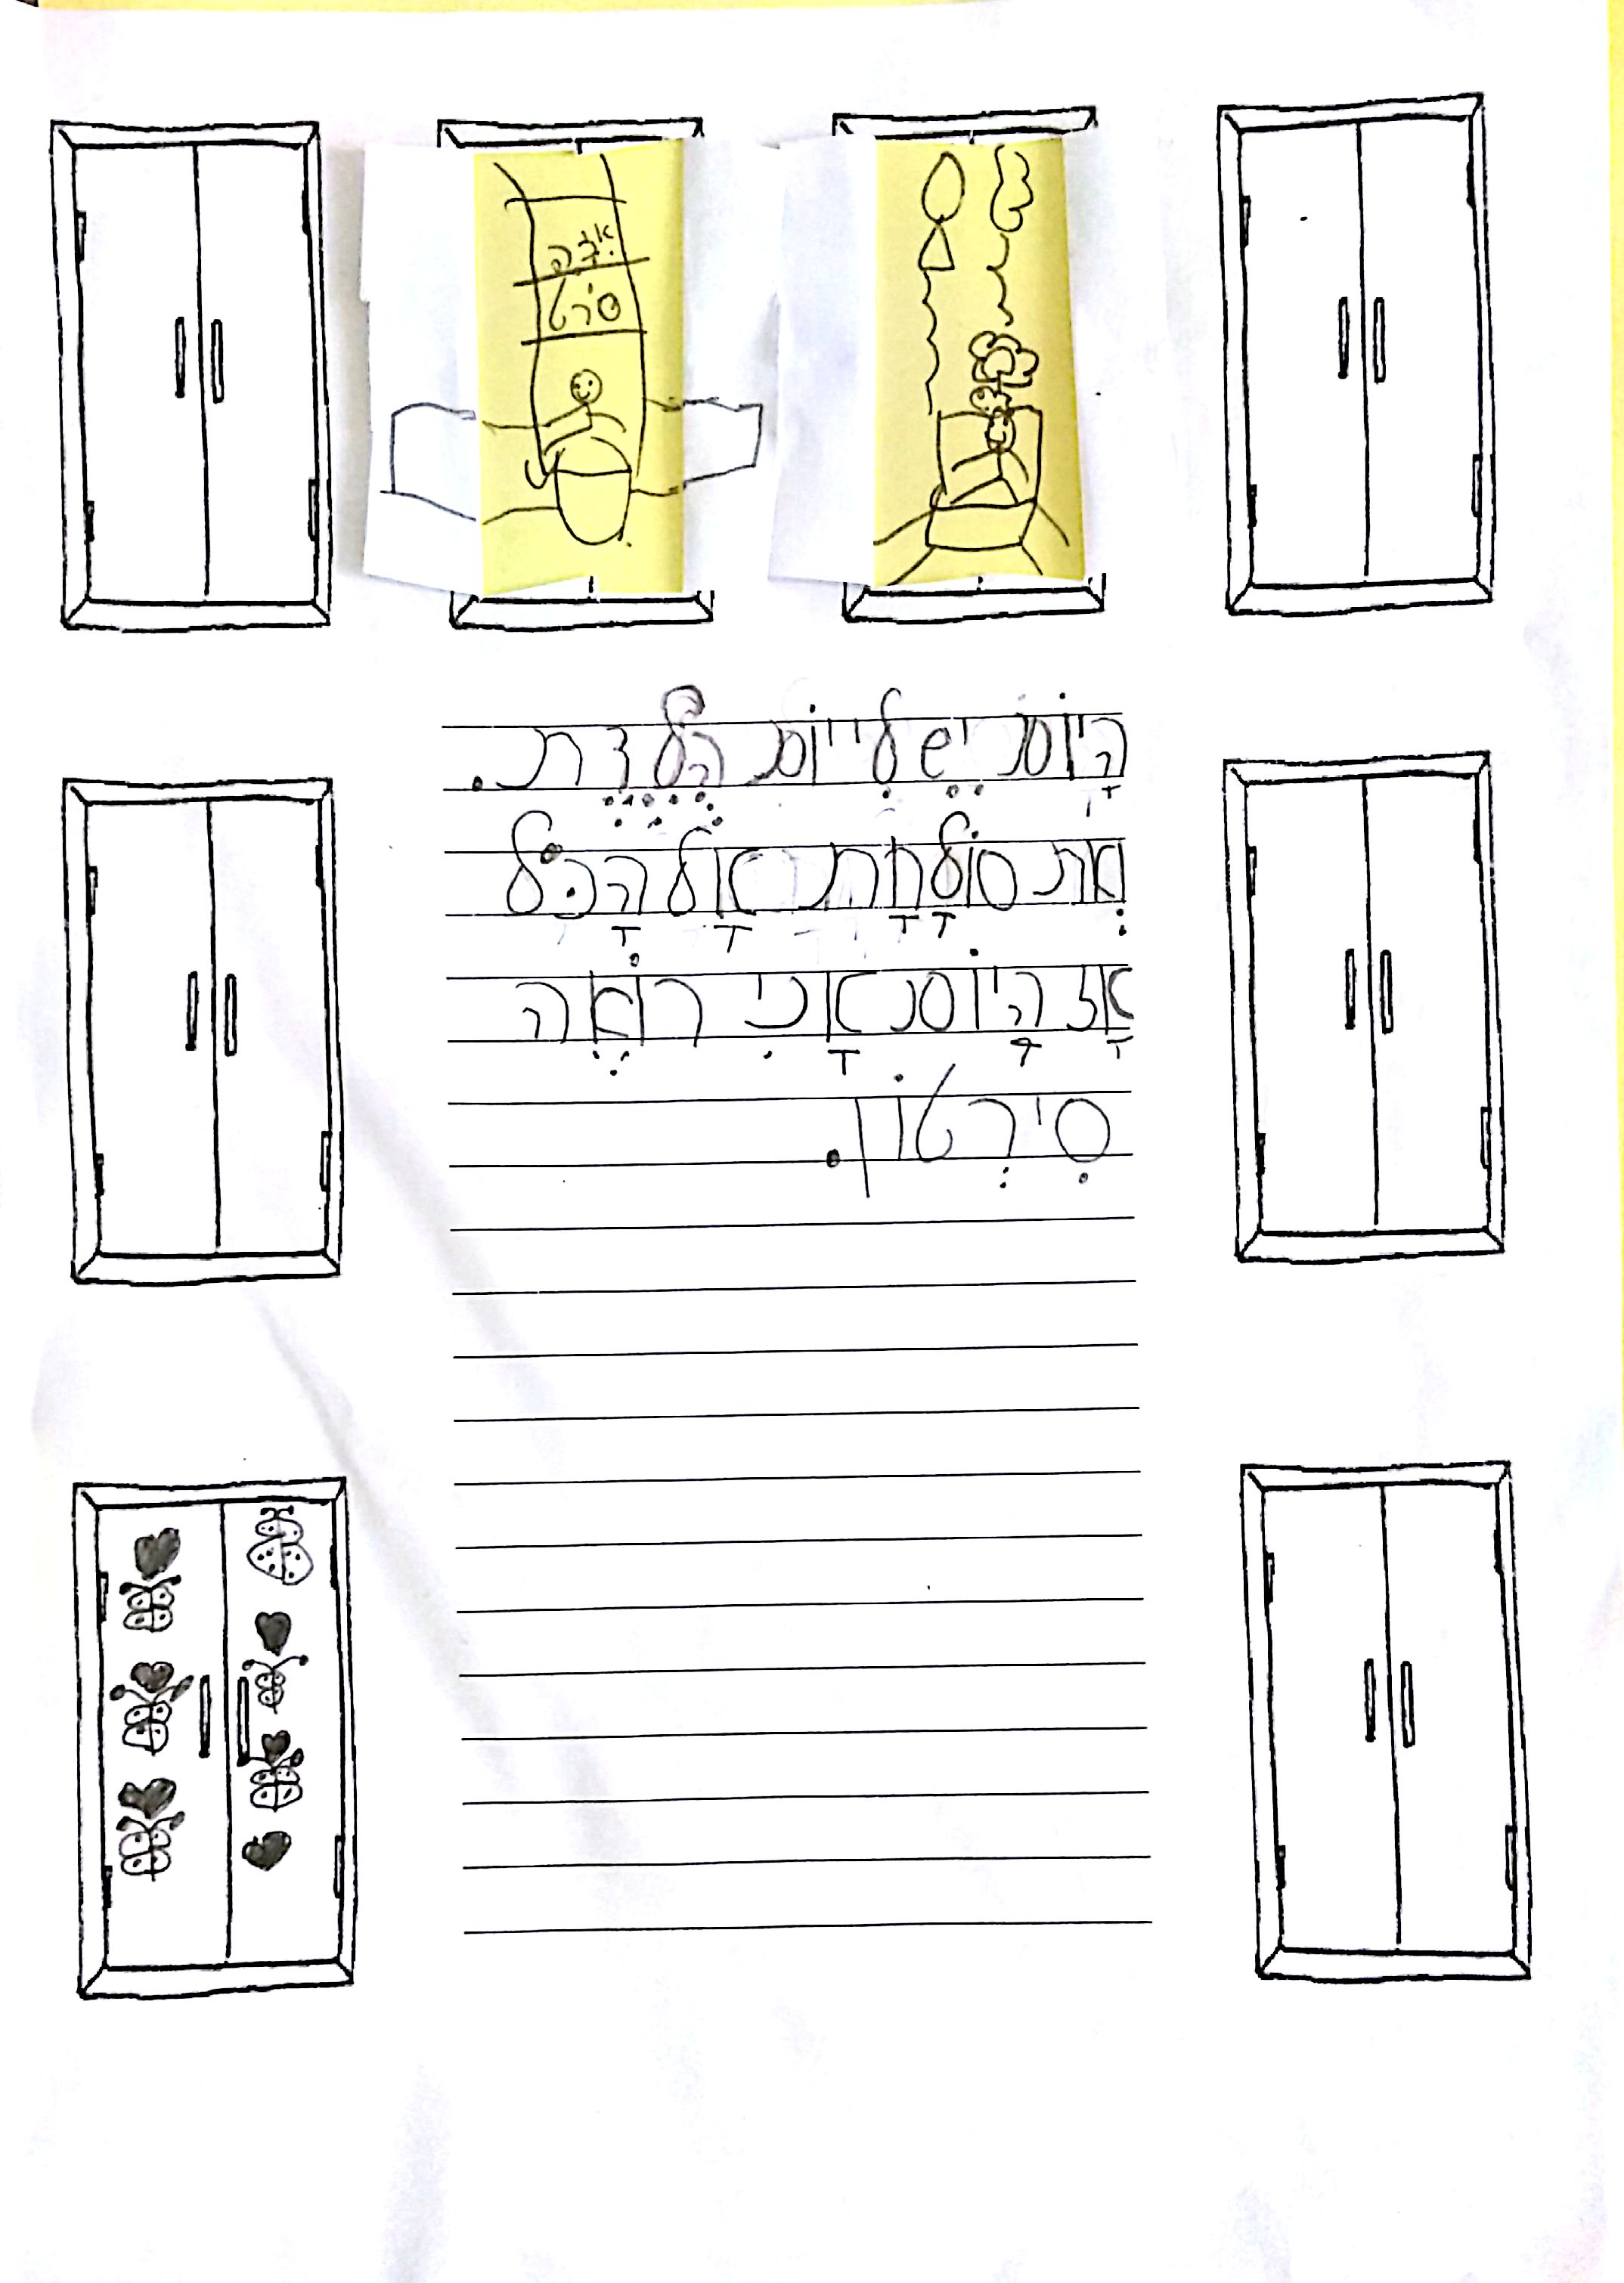 סרט
היום יש לי יום הלדת.
את סולחת אל הכל
אז היום אני רואה
סירטון.